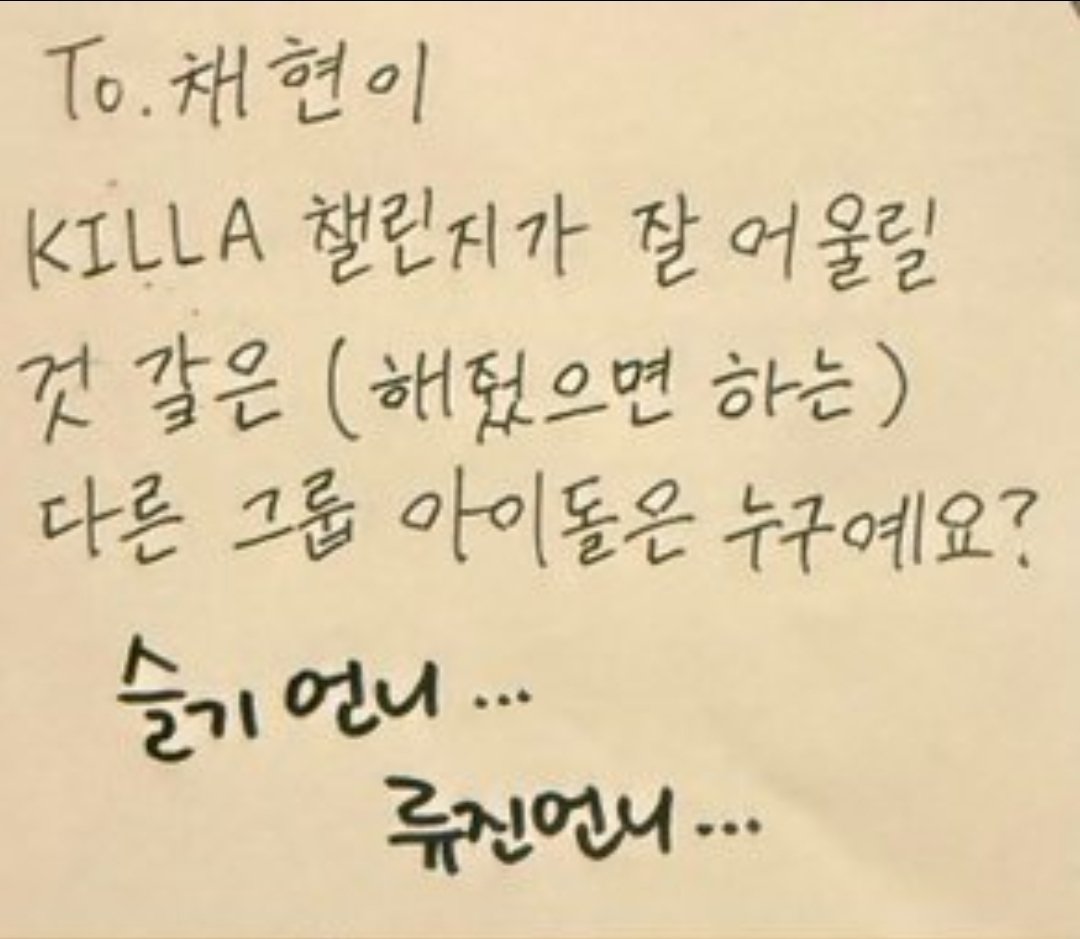 To. 채현이
KILLA 챌린지가 잘 어울릴
것 같은 (해줬으면 하는)
다른 그룹 아이돌은 누구예요?
슬기 언니...
류진언니...